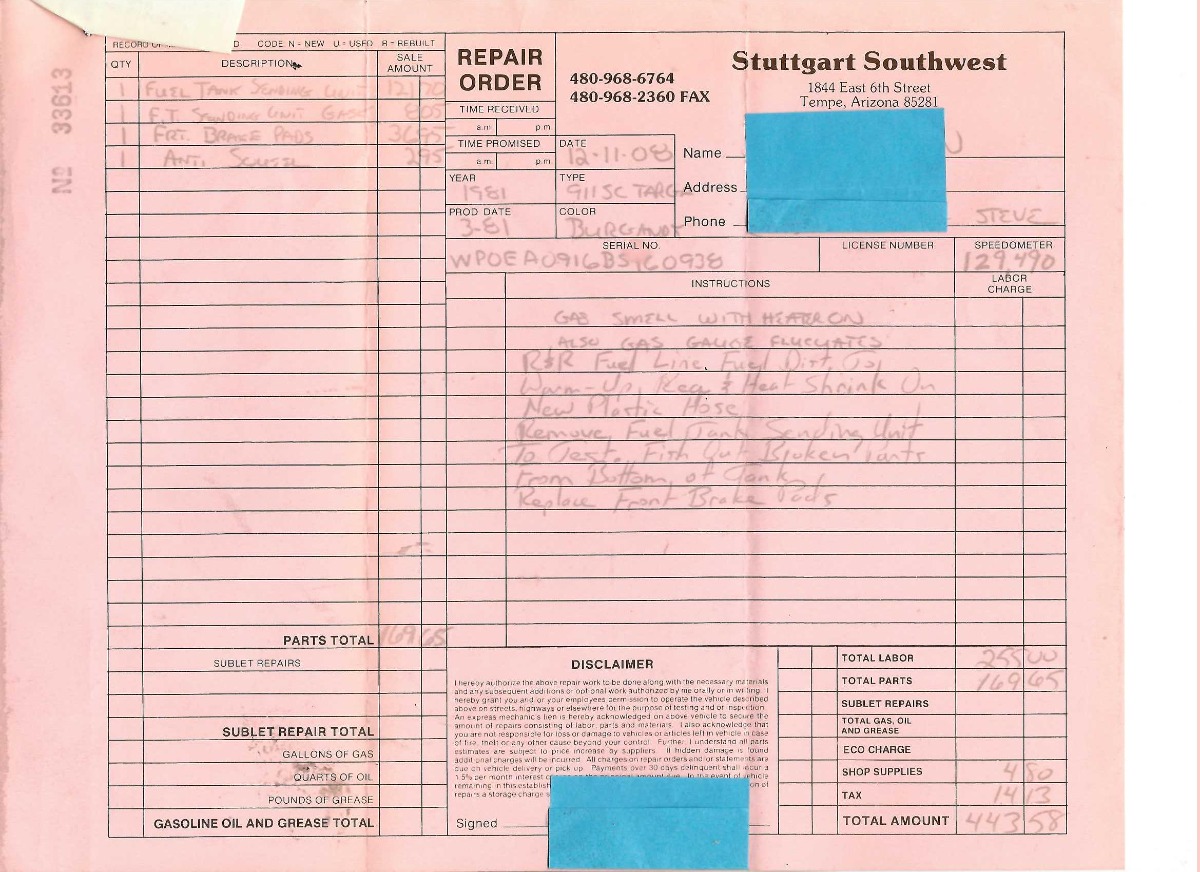 No 33613
CODE N = NEW U = USED R = REBUILT
QTY DESCRIPTION SALE AMOUNT
1 FUEL TANK SENDING UNIT 121 70
1 F.T. SENDING UNIT GASK 8 05
1 FRT. BRAKE PADS 36 95
1 ANTI SQUEEL 2 95
PARTS TOTAL 169 65
SUBLET REPAIRS
SUBLET REPAIR TOTAL
GALLONS OF GAS
QUARTS OF OIL
POUNDS OF GREASE
GASOLINE OIL AND GREASE TOTAL
REPAIR ORDER
480-968-6764
480-968-2360 FAX
Stuttgart Southwest
1844 East 6th Street
Tempe, Arizona 85281
TIME RECEIVED
a.m. p.m.
TIME PROMISED
a.m. p.m.
DATE
12-11-08
YEAR
1981
TYPE
911SC TARGA
PROD DATE
3-81
COLOR
BURGANDY
Name
Address
Phone
STEVE
SERIAL NO.
WPOEA0916BS160938
LICENSE NUMBER
SPEEDOMETER
129,490
INSTRUCTIONS
LABOR CHARGE
GAS SMELL WITH HEATER ON
ALSO GAS GAUGE FLUCUATES
R&R Fuel Line, Fuel Dist. To
Warm-Up, Reg & Heat Shrink On
New Plastic Hose
Remove Fuel Tank Sending Unit
To Test. Fish Out Broken Parts
From Bottom of Tank
Replace Front Brake Pads
DISCLAIMER
I hereby authorize the above repair work to be done along with the necessary materials
and any subsequent additions or optional work authorized by me orally or in writing. I
hereby grant you and/or your employees permission to operate the vehicle described
above on streets, highways or elsewhere for the purpose of testing and/or inspection.
An express mechanic's lien is hereby acknowledged on above vehicle to secure the
amount of repairs consisting of labor, parts and materials. I also acknowledge that
you are not responsible for loss or damage to vehicles or articles left in vehicle in case
of fire, theft or any other cause beyond your control. Further, I understand all parts
estimates are subject to price increase by suppliers. If hidden damage is found
additional charges will be incurred. All charges on repair orders and/or statements are
due on vehicle delivery or pick up. Payments over 30 days delinquent shall incur a
1.5% per month interest on the principal amount due. In the event of vehicle
remaining in this establish on of
repairs a storage charge
Signed
TOTAL LABOR 255 00
TOTAL PARTS 169 65
SUBLET REPAIRS
TOTAL GAS, OIL AND GREASE
ECO CHARGE
SHOP SUPPLIES 4 80
TAX 14 13
TOTAL AMOUNT 443 58